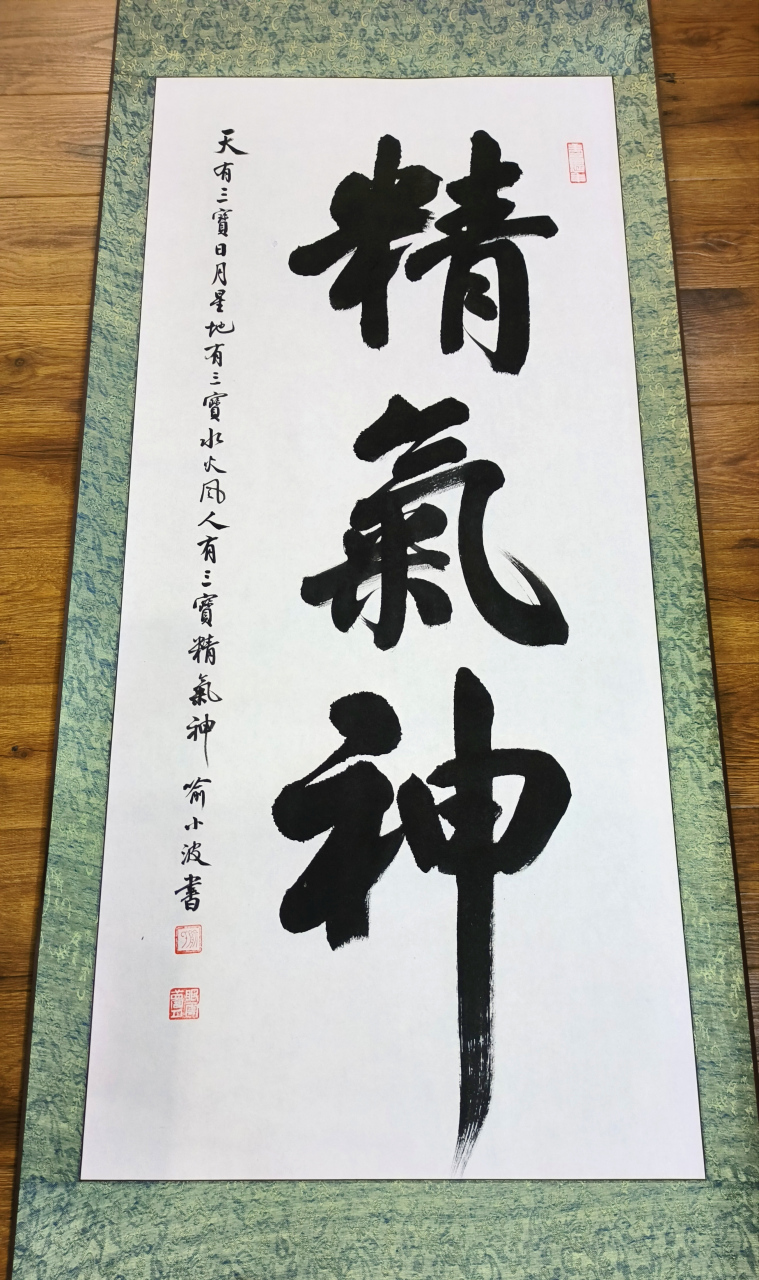 精氣神
天有三寶日月星地有三寶水火风人有三寶精氣神 喻小波書